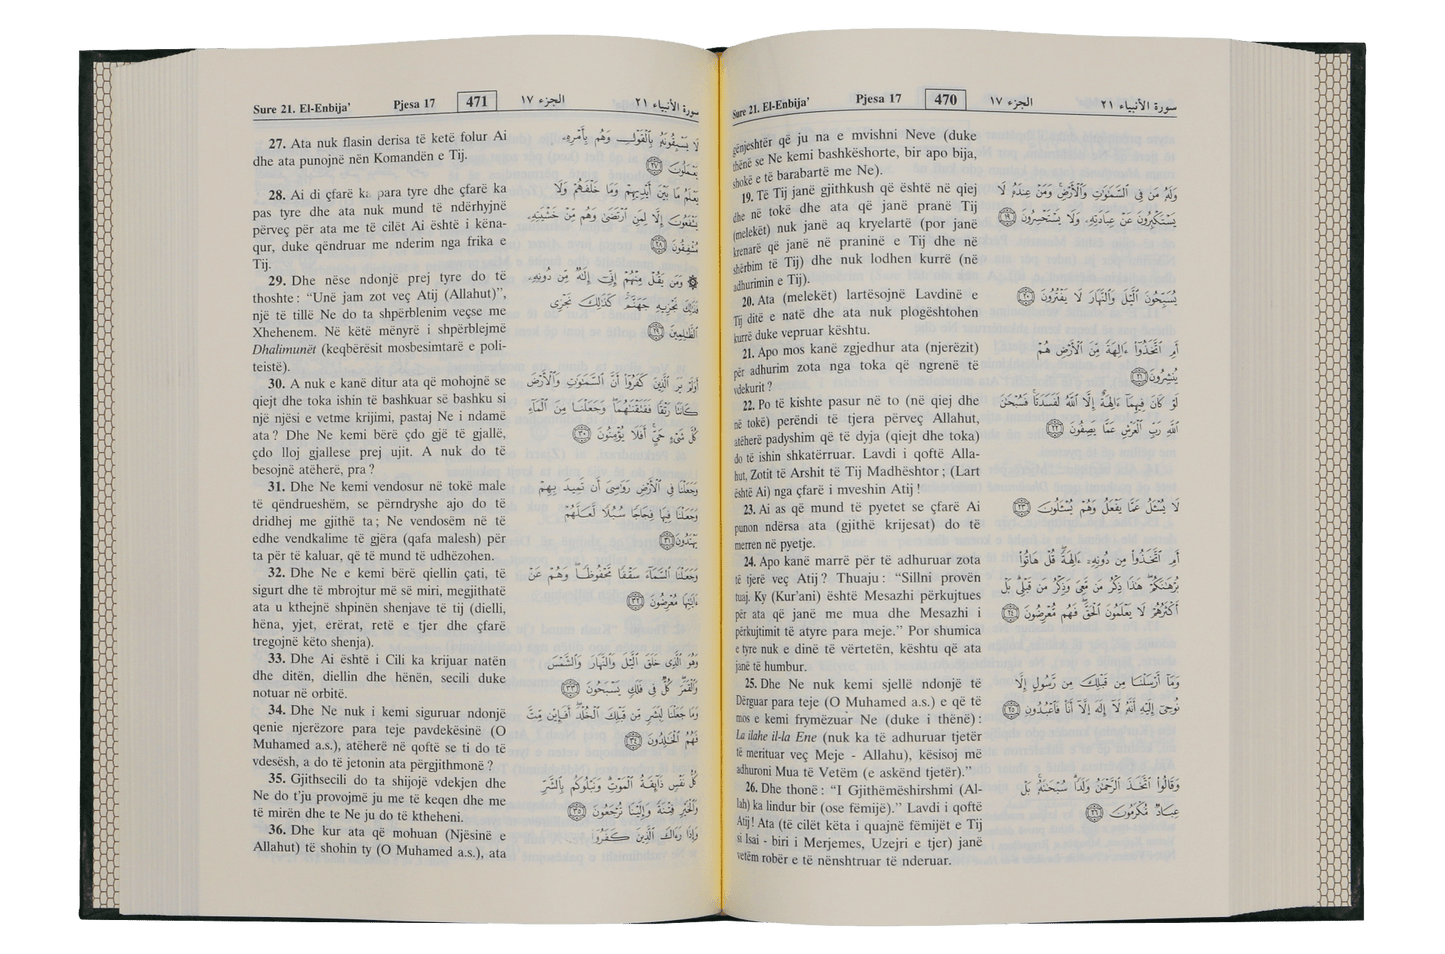 Sure 21. El-Enbija’ Pjesa 17 470 الجزء ١٧ سورة الأنبياء ٢١
gënjeshtër që ju na e mvishni Neve (duke
thënë se Ne kemi bashkëshorte, bir apo bija,
shokë e të barabartë me Ne).
19. Të Tij janë gjithkush që është në qiej
dhe në tokë dhe ata që janë pranë Tij
(melekët) nuk janë aq kryelartë (por janë
krenarë që janë në praninë e Tij dhe në
shërbim të Tij) dhe nuk lodhen kurrë (në
adhurimin e Tij).
20. Ata (melekët) lartësojnë Lavdinë e
Tij ditë e natë dhe ata nuk plogështohen
kurrë duke vepruar kështu.
21. Apo mos kanë zgjedhur ata (njerëzit)
për adhurim zota nga toka që ngrenë të
vdekurit ?
22. Po të kishte pasur në to (në qiej dhe
në tokë) perëndi të tjera përveç Allahut,
atëherë padyshim që të dyja (qiejt dhe toka)
do të ishin shkatërruar. Lavdi i qoftë Alla-
hut, Zotit të Arshit të Tij Madhështor ; (Lart
është Ai) nga çfarë i mveshin Atij !
23. Ai as që mund të pyetet se çfarë Ai
punon ndërsa ata (gjithë krijesat) do të
merren në pyetje.
24. Apo kanë marrë për të adhuruar zota
të tjerë veç Atij ? Thuaju : “Sillni provën
tuaj. Ky (Kur'ani) është Mesazhi përkujtues
për ata që janë me mua dhe Mesazhi i
përkujtimit të atyre para meje.” Por shumica
e tyre nuk e dinë të vërtetën, kështu që ata
janë të humbur.
25. Dhe Ne nuk kemi sjellë ndonjë të
Dërguar para teje (O Muhamed a.s.) e që të
mos e kemi frymëzuar Ne (duke i thënë) :
La ilahe il-la Ene (nuk ka të adhuruar tjetër
të merituar veç Meje - Allahu), kësisoj më
adhuroni Mua të Vetëm (e askënd tjetër).”
26. Dhe thonë : “I Gjithëmëshirshmi (Al-
lah) ka lindur bir (ose fëmijë).” Lavdi i qoftë
Atij ! Ata (të cilët këta i quajnë fëmijët e Tij
si Isai - biri i Merjemes, Uzejri e tjer) janë
vetëm robër e të nënshtruar të nderuar.
وَلَهُۥ مَن فِي ٱلسَّمَٰوَٰتِ وَٱلۡأَرۡضِۚ وَمَنۡ عِندَهُۥ لَا
يَسۡتَكۡبِرُونَ عَنۡ عِبَادَتِهِۦ وَلَا يَسۡتَحۡسِرُونَ ١٩
يُسَبِّحُونَ ٱلَّيۡلَ وَٱلنَّهَارَ لَا يَفۡتُرُونَ ٢٠
أَمِ ٱتَّخَذُوٓاْ ءَالِهَةٗ مِّنَ ٱلۡأَرۡضِ هُمۡ
يُنشِرُونَ ٢١
لَوۡ كَانَ فِيهِمَآ ءَالِهَةٌ إِلَّا ٱللَّهُ لَفَسَدَتَاۚ فَسُبۡحَٰنَ
ٱللَّهِ رَبِّ ٱلۡعَرۡشِ عَمَّا يَصِفُونَ ٢٢
لَا يُسۡـَٔلُ عَمَّا يَفۡعَلُ وَهُمۡ يُسۡـَٔلُونَ ٢٣
أَمِ ٱتَّخَذُواْ مِن دُونِهِۦٓ ءَالِهَةٗۖ قُلۡ هَاتُواْ
بُرۡهَٰنَكُمۡۖ هَٰذَا ذِكۡرُ مَن مَّعِيَ وَذِكۡرُ مَن قَبۡلِيۚ بَلۡ
أَكۡثَرُهُمۡ لَا يَعۡلَمُونَ ٱلۡحَقَّۖ فَهُم مُّعۡرِضُونَ ٢٤
وَمَآ أَرۡسَلۡنَا مِن قَبۡلِكَ مِن رَّسُولٍ إِلَّا
نُوحِيٓ إِلَيۡهِ أَنَّهُۥ لَآ إِلَٰهَ إِلَّآ أَنَا۠ فَٱعۡبُدُونِ ٢٥
وَقَالُواْ ٱتَّخَذَ ٱلرَّحۡمَٰنُ وَلَدٗاۗ سُبۡحَٰنَهُۥۚ بَلۡ
عِبَادٞ مُّكۡرَمُونَ ٢٦
Sure 21. El-Enbija’ Pjesa 17 471 الجزء ١٧ سورة الأنبياء ٢١
27. Ata nuk flasin derisa të ketë folur Ai
dhe ata punojnë nën Komandën e Tij.
28. Ai di çfarë ka para tyre dhe çfarë ka
pas tyre dhe ata nuk mund të ndërhyjnë
përveç për ata me të cilët Ai është i këna-
qur, duke qëndruar me nderim nga frika e
Tij.
29. Dhe nëse ndonjë prej tyre do të
thoshte : “Unë jam zot veç Atij (Allahut)”,
një të tillë Ne do ta shpërblenim veçse me
Xhehenem. Në këtë mënyrë i shpërblejmë
Dhalimunët (keqbërësit mosbesimtarë e poli-
teistë).
30. A nuk e kanë ditur ata që mohojnë se
qiejt dhe toka ishin të bashkuar së bashku si
një njësi e vetme krijimi, pastaj Ne i ndamë
ata ? Dhe Ne kemi bërë çdo gjë të gjallë,
çdo lloj gjallese prej ujit. A nuk do të
besojnë atëherë, pra ?
31. Dhe Ne kemi vendosur në tokë male
të qëndrueshëm, se përndryshe ajo do të
dridhej me gjithë ta ; Ne vendosëm në të
edhe vendkalime të gjëra (qafa malesh) për
ta për të kaluar, që të mund të udhëzohen.
32. Dhe Ne e kemi bërë qiellin çati, të
sigurt dhe të mbrojtur më së miri, megjithatë
ata u kthejnë shpinën shenjave të tij (dielli,
hëna, yjet, erërat, retë e tjer dhe çfarë
tregojnë këto shenja).
33. Dhe Ai është i Cili ka krijuar natën
dhe ditën, diellin dhe hënën, secili duke
notuar në orbitë.
34. Dhe Ne nuk i kemi siguruar ndonjë
qenie njerëzore para teje pavdekësinë (O
Muhamed a.s.), atëherë në qoftë se ti do të
vdesësh, a do të jetonin ata përgjithmonë ?
35. Gjithsecili do ta shijojë vdekjen dhe
Ne do t'ju provojmë ju me të keqen dhe me
të mirën dhe te Ne ju do të ktheheni.
36. Dhe kur ata që mohuan (Njësinë e
Allahut) të shohin ty (O Muhamed a.s.), ata
لَا يَسۡبِقُونَهُۥ بِٱلۡقَوۡلِ وَهُم بِأَمۡرِهِۦ
يَعۡمَلُونَ ٢٧
يَعۡلَمُ مَا بَيۡنَ أَيۡدِيهِمۡ وَمَا خَلۡفَهُمۡ وَلَا
يَشۡفَعُونَ إِلَّا لِمَنِ ٱرۡتَضَىٰ وَهُم مِّنۡ خَشۡيَتِهِۦ
مُشۡفِقُونَ ٢٨
۞ وَمَن يَقُلۡ مِنۡهُمۡ إِنِّيٓ إِلَٰهٞ مِّن دُونِهِۦ
فَذَٰلِكَ نَجۡزِيهِ جَهَنَّمَۚ كَذَٰلِكَ نَجۡزِي
ٱلظَّٰلِمِينَ ٢٩
أَوَلَمۡ يَرَ ٱلَّذِينَ كَفَرُوٓاْ أَنَّ ٱلسَّمَٰوَٰتِ وَٱلۡأَرۡضَ
كَانَتَا رَتۡقٗا فَفَتَقۡنَٰهُمَاۖ وَجَعَلۡنَا مِنَ ٱلۡمَآءِ
كُلَّ شَيۡءٍ حَيٍّۚ أَفَلَا يُؤۡمِنُونَ ٣٠
وَجَعَلۡنَا فِي ٱلۡأَرۡضِ رَوَٰسِيَ أَن تَمِيدَ بِهِمۡ
وَجَعَلۡنَا فِيهَا فِجَاجٗا سُبُلٗا لَّعَلَّهُمۡ
يَهۡتَدُونَ ٣١
وَجَعَلۡنَا ٱلسَّمَآءَ سَقۡفٗا مَّحۡفُوظٗاۖ وَهُمۡ عَنۡ
ءَايَٰتِهَا مُعۡرِضُونَ ٣٢
وَهُوَ ٱلَّذِي خَلَقَ ٱلَّيۡلَ وَٱلنَّهَارَ وَٱلشَّمۡسَ
وَٱلۡقَمَرَۖ كُلّٞ فِي فَلَكٖ يَسۡبَحُونَ ٣٣
وَمَا جَعَلۡنَا لِبَشَرٖ مِّن قَبۡلِكَ ٱلۡخُلۡدَۖ أَفَإِيْن مِّتَّ
فَهُمُ ٱلۡخَٰلِدُونَ ٣٤
كُلُّ نَفۡسٖ ذَآئِقَةُ ٱلۡمَوۡتِۗ وَنَبۡلُوكُم بِٱلشَّرِّ
وَٱلۡخَيۡرِ فِتۡنَةٗۖ وَإِلَيۡنَا تُرۡجَعُونَ ٣٥
وَإِذَا رَءَاكَ ٱلَّذِينَ كَفَرُوٓاْ